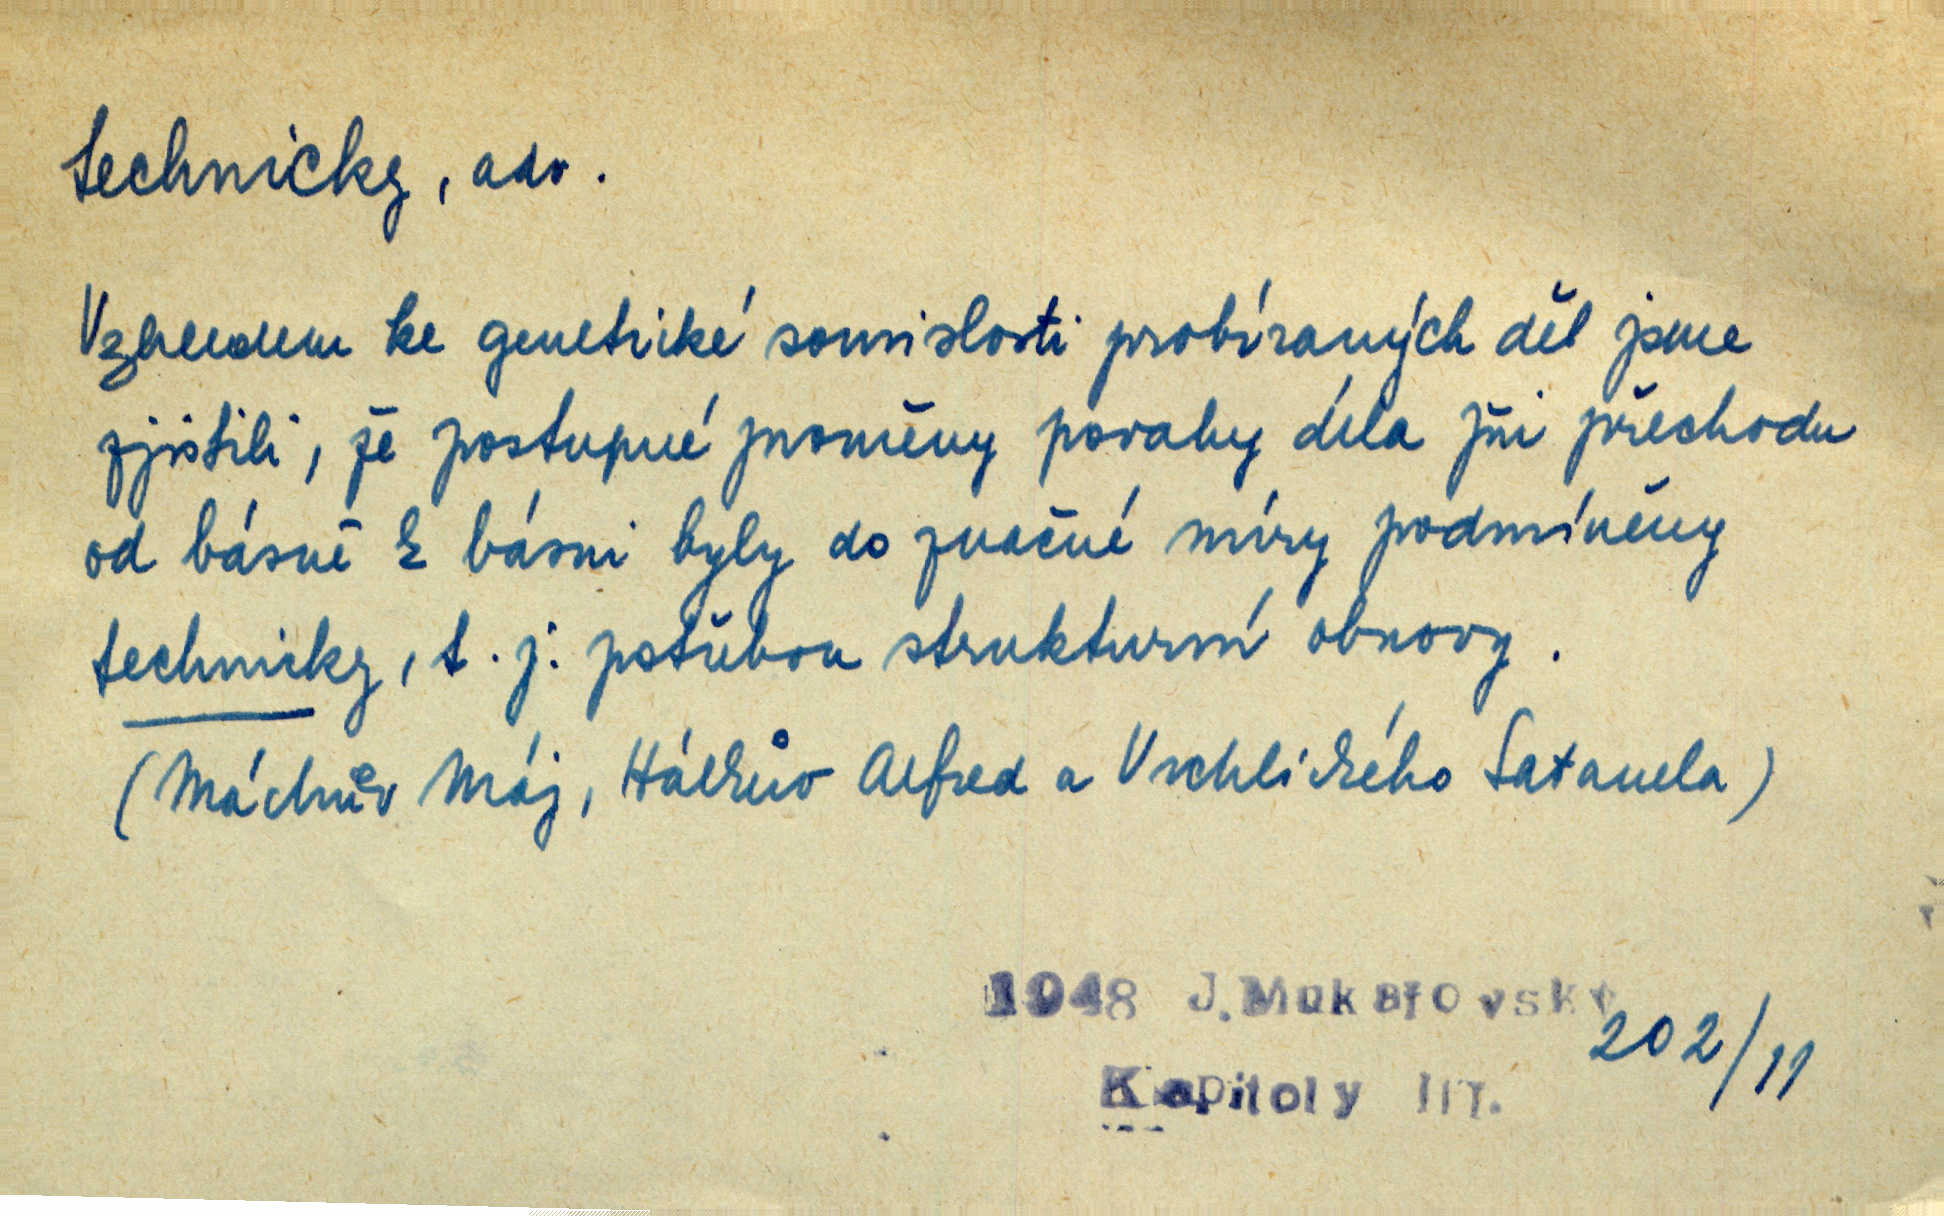 technicky, adv.
Vzhledem ke genetické souvislosti probíraných děl jsme
zjistili, že postupné proměny povahy díla při přechodu
od básně k básni byly do značné míry podmíněny
technicky, t. j. potřebou strukturní obnovy.
(Máchův Máj, Hálkův Alfred a Vrchlického Satanela)
1948 J. Mukařovský
202/11
Kapitoly III.